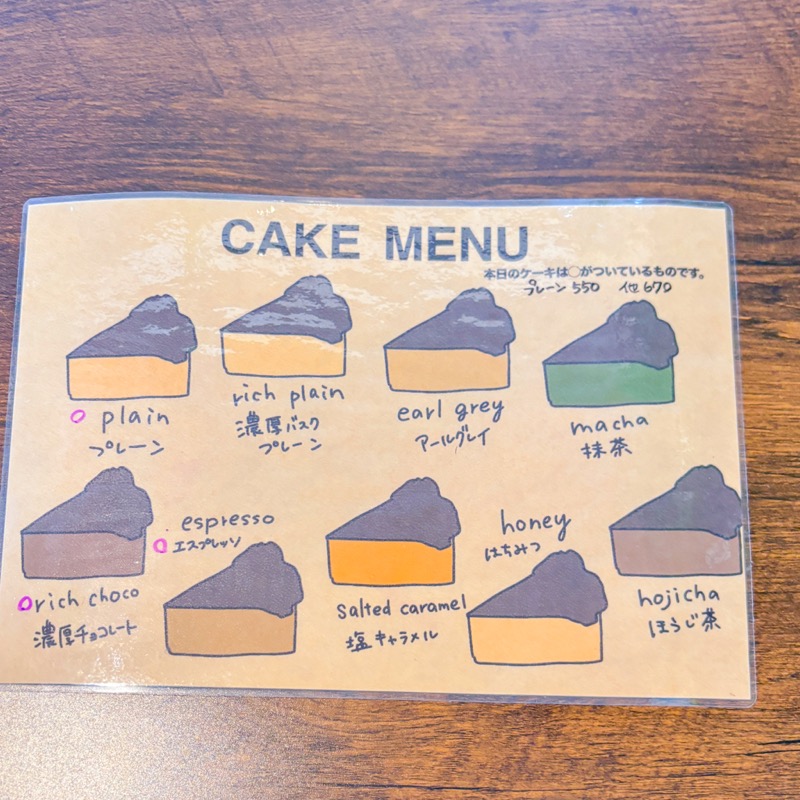 CAKE MENU
本日のケーキは○がついているものです。
プレーン 550 他 670
○ plain
プレーン
rich plain
濃厚バスク
プレーン
earl grey
アールグレイ
macha
抹茶
○rich choco
濃厚チョコレート
espresso
○ エスプレッソ
salted caramel
塩キャラメル
honey
はちみつ
hojicha
ほうじ茶